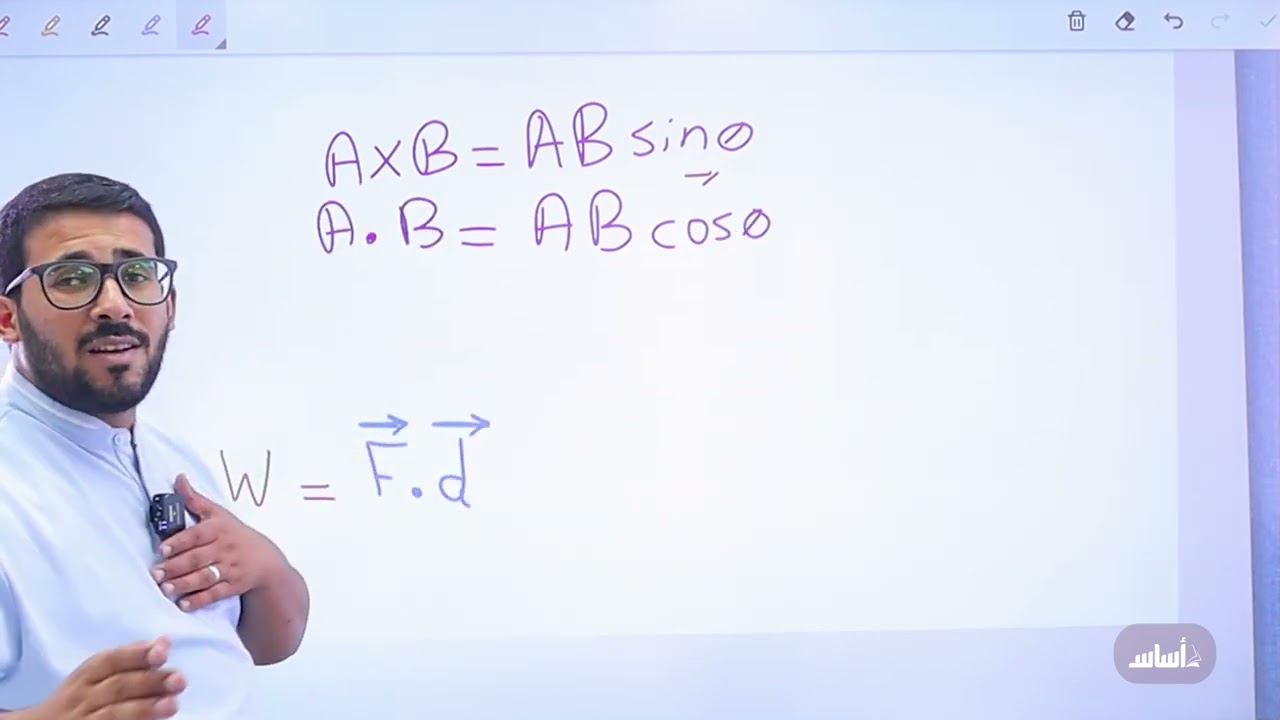 A×B = AB sinθ
A.B = AB cosθ
W = F⃗.d⃗
أساس